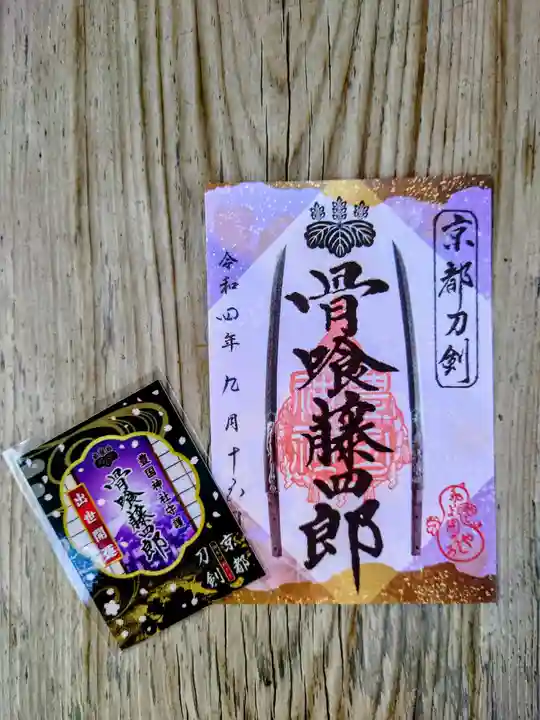 京都刀剣
骨喰藤四郎
令和四年九月十
豊国神社守護
骨喰藤四郎
出世開運
京都
刀剣